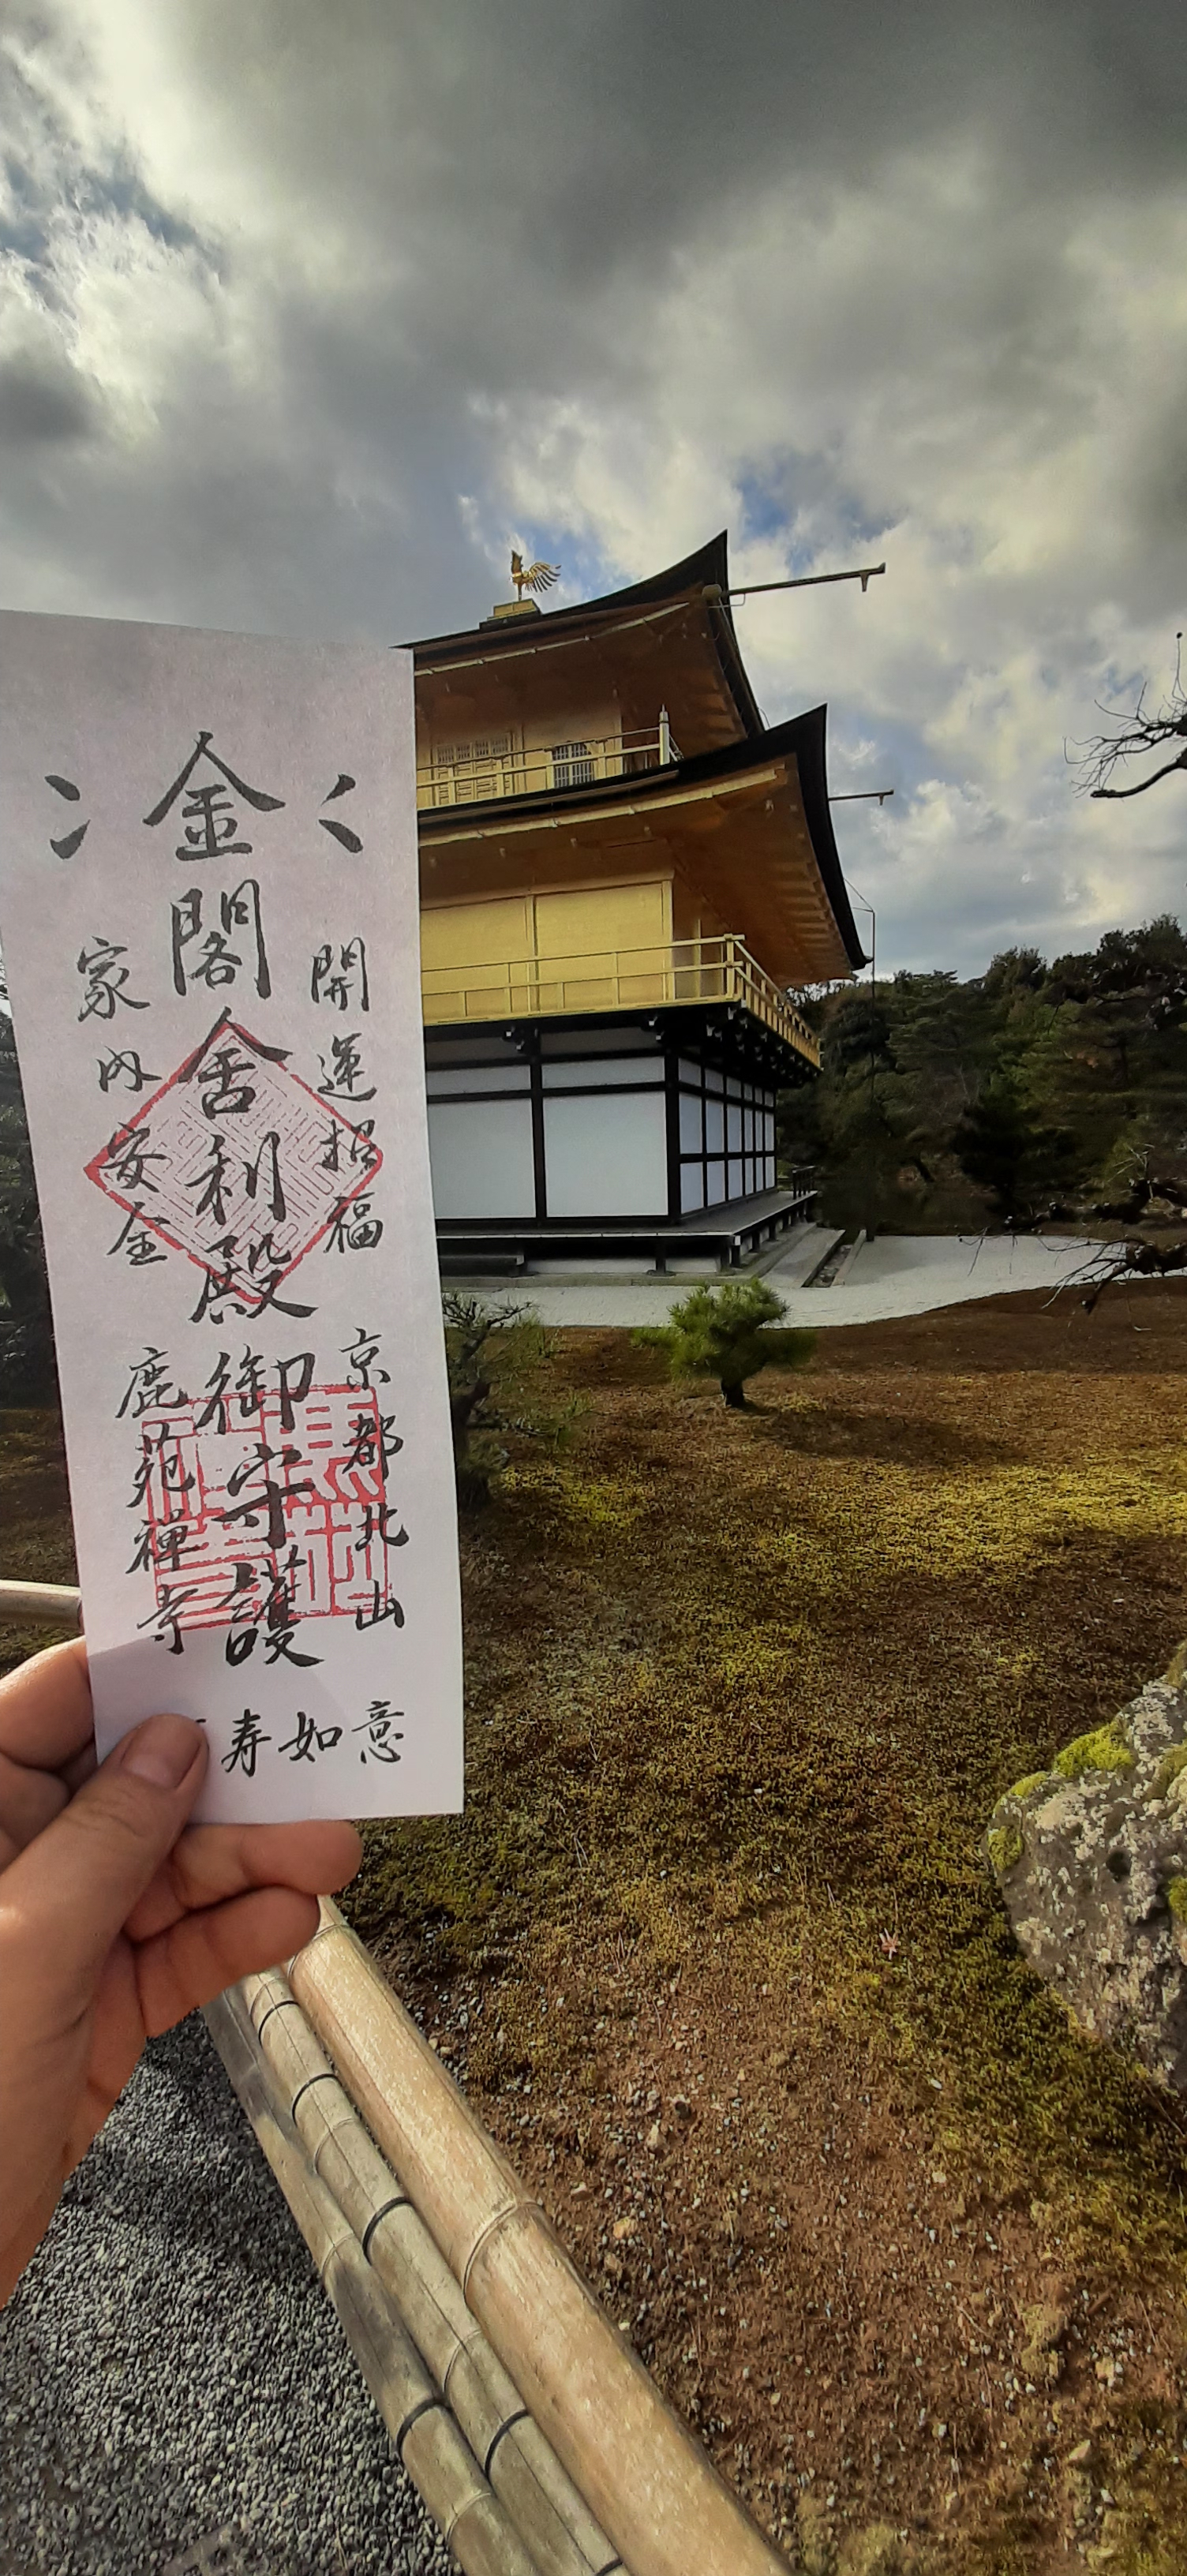 開運招福
京都北山
金閣舎利殿御守護
家内安全
鹿苑禅寺
寿如意